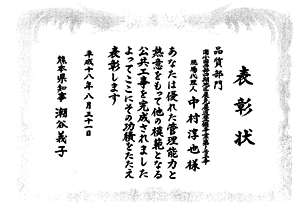 表彰状
品質部門
現場代理人
中村淳也様
あなたは優れた管理能力と
熱意をもって他の模範となる
公共工事を完成されました
よってここにその功績をたたえ
表彰します
平成十八年八月三十一日
熊本県知事 潮谷義子